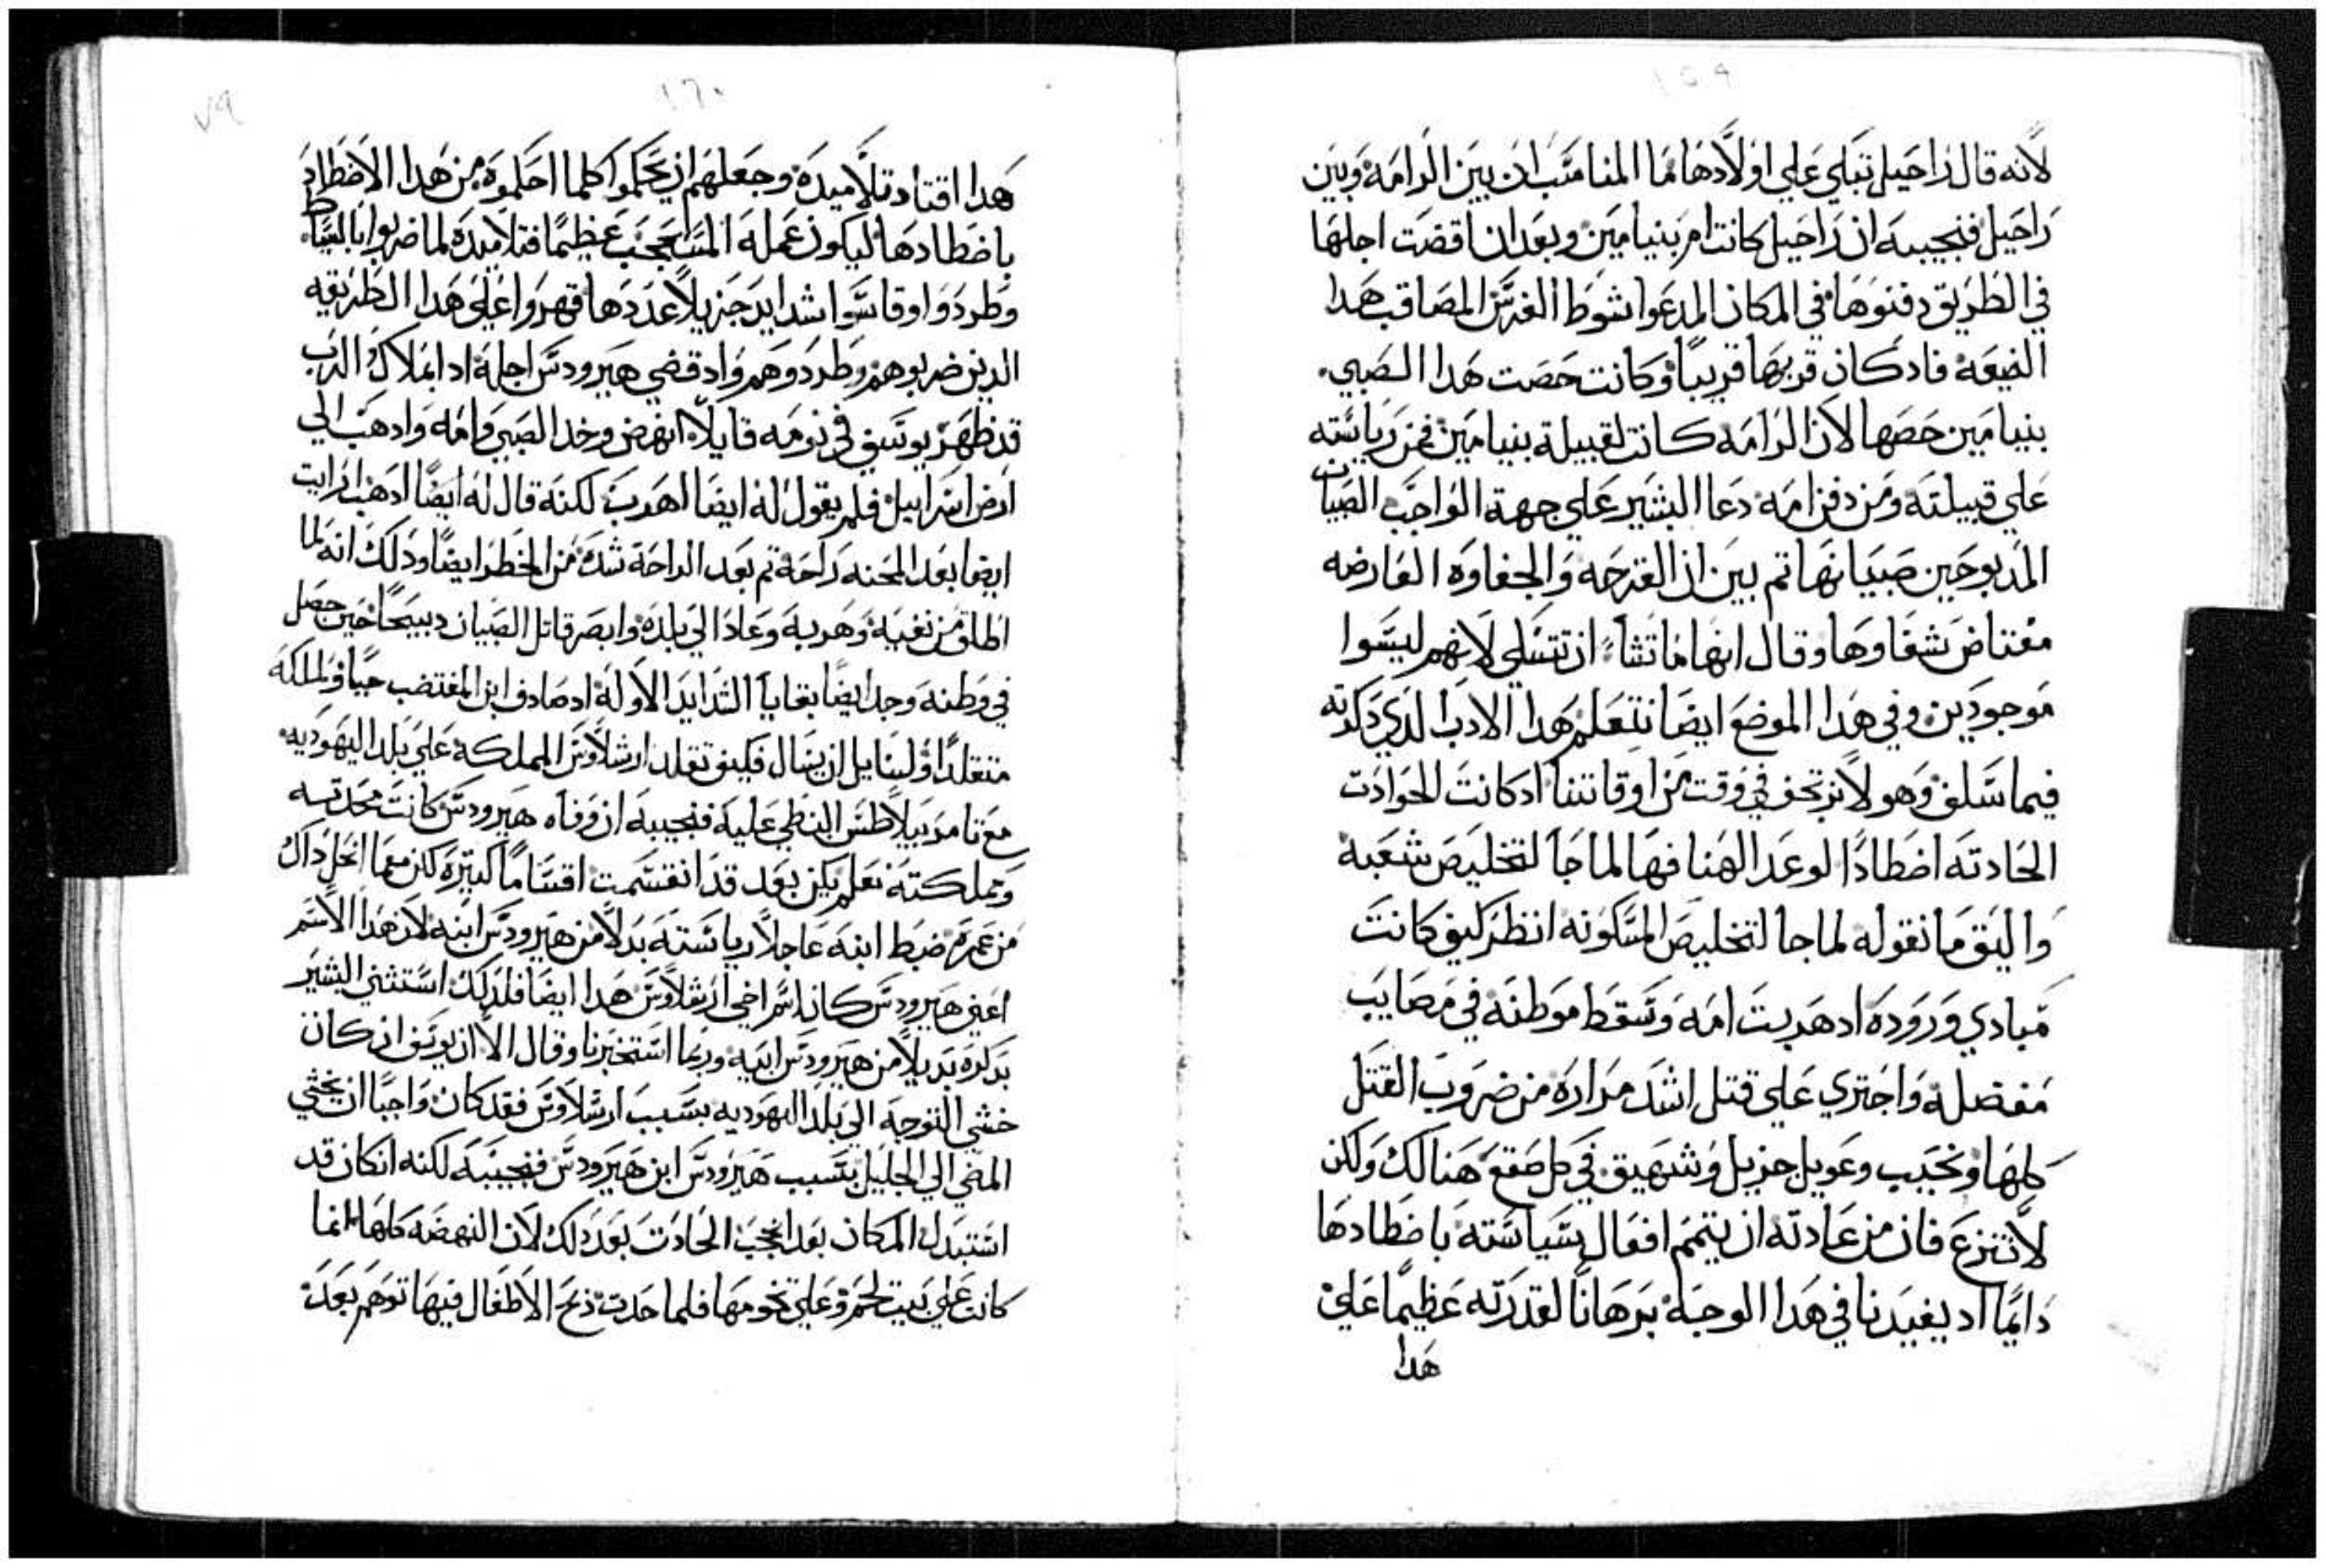 ١٥٩
لانه قال راحيل تبكي علي اولادها فما المناسب ان بين الرامه وبين
راحيل فنجيبه ان راحيل كانت ام بنيامين وبعد ان اقضت اجلها
في الطريق دفنوها في المكان المدعوا شوط الفرس المصاقب هدا
الضيعه فاد كان قربها قريبا وكانت حصت هدا الصبي
بنيامين حصها لان الرامه كانت لقبيلة بنيامين فمن رياسته
علي قبيلته ومن دفن امه دعا البشير علي جهة الواجب الصبيان
المدبوحين صبيانها تم بين ان القرحه والجفاوه العارضه
مغتاض شفاوها وقال انها ما تشا ان تتسلي لانهم ليسوا
موجودين وفي هدا الموضع ايضا نتعلم هدا الادب الدي دكرته
فيما سلف وهو لا نرتجف في وقت من اوقاتنا اد كانت الحوادت
الحادته اضطادا لوعد الهنا فها لما جا لتخليص شعبه
واليق ما نقوله لما جا لتخليص المسكونه انظر كيف كانت
مبادي وروده اد هربت امه وسقط موطنه في مصايب
مفضله واجتري علي قتل اشد مراره من ضروب القتل
كلها ونحيب وعويل جزيل وشهيق في كل صقع هنالك ولكن
لا تنزع فان من عادته ان يتمم افعال سياسته باضطادها
دايما اد يفيدنا في هدا الوجه برهانا لقدرته عظيما علي
هدا
١٦٠
٧٩
هدا اقتاد تلاميده وجعلهم ان يحكموا كلما احكموه من هدا الاضطاد
باضطادها ليكون عمله المستعجب عظيما فتلاميده لما ضربوا بالسياط
وطردوا وقاسوا شدايد جزيلا عددها قهروا علي هدا الطريقه
الدين ضربوهم وطردوهم واد قضي هيرودس اجله ادا بملاك الرب
قد ظهر يوسف في نومه قايلا انهض وخد الصبي وامه وادهب الي
ارض اسراييل فلم يقول له ايضا اهرب لكنه قال له ايضا ادهب ارايت
ايضا بعد المحنه راحة تم بعد الراحة شدة من الخطر ايضا ودلك انه لما
اطلق من نفيه وهربه وعاد الي بلده وابصر قاتل الصبيان دبيحا حين حصل
في وطنه وجد ايضا بقايا الشدايد الاوله اد صادف ابن المغتضب حيا والملكه
متقلدا ولسايل ان يسال فكيف تقلد ارشلاوس المملكه علي بلد اليهوديه
مع تامر بيلاطس البنطي عليه فنجيبه ان وفاه هيرودس كانت محدته
ومملكته نعلم يكن بعد قد انقسمت اقساما كتيره لكن معما انحل داك
من عمره ضبط ابنه عاجلا رياسته بدلا من هيرودس ابنه لان هدا الاسم
اعني هيرودس كان اسم اخي ارشلاوس هدا ايضا فلدلك استثني البشير
بدكره بديلا من هيرودس ابيه وربما استخبرنا وقال الا ان يوسف ان كان
خشي التوجه الي بلد اليهوديه بسبب ارشلاوس فقد كان واجبا ان يخشي
المضي الي الجليل بسبب هيرودس ابن هيرودس فنجيبه لكنه ان كان قد
استبدل المكان بعد انحجب الحادت بعد دلك لان النهضه كلها انما
كانت علي بيت لحم وعلي تخومها فلما حدت دبح الاطفال فيها توهم بعد